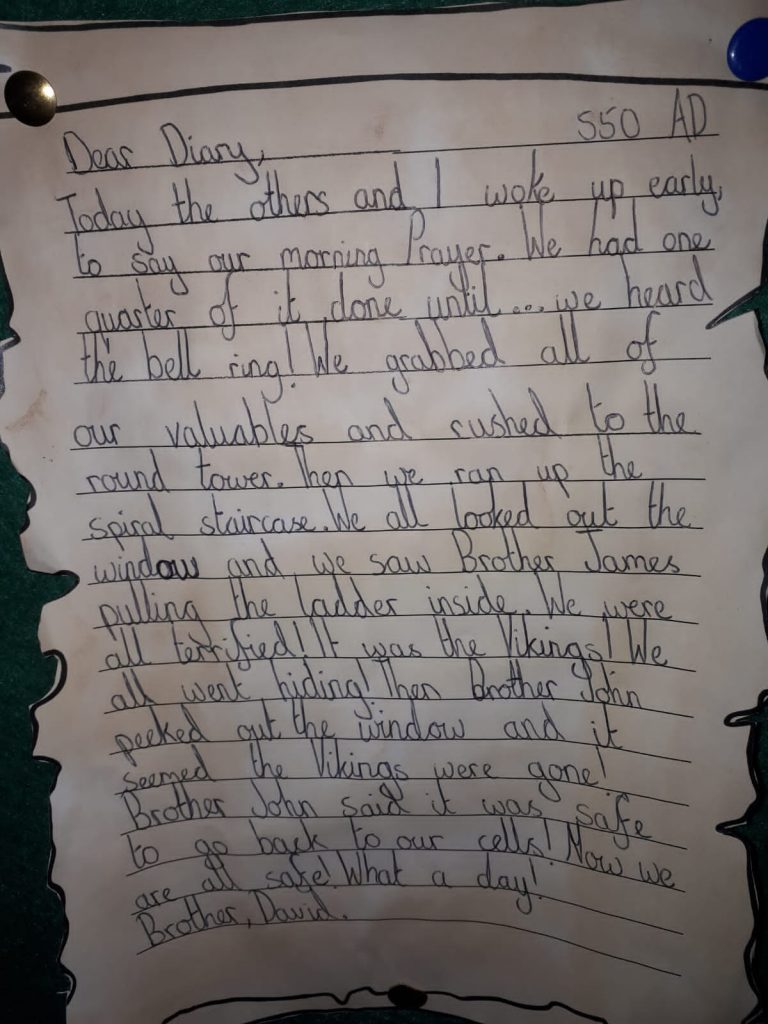 Dear Diary, 550 AD
Today the others and I woke up early,
to say our morning Prayer. We had one
quarter of it done until...we heard
the bell ring! We grabbed all of
our valuables and rushed to the
round tower. Then we ran up the
spiral staircase. We all looked out the
window and we saw Brother James
pulling the ladder inside. We were
all terrified! It was the Vikings! We
all went hiding! Then Brother John
peeked out the window and it
seemed the Vikings were gone!
Brother John said it was safe
to go back to our cells! Now we
are all safe! What a day!
Brother, David.